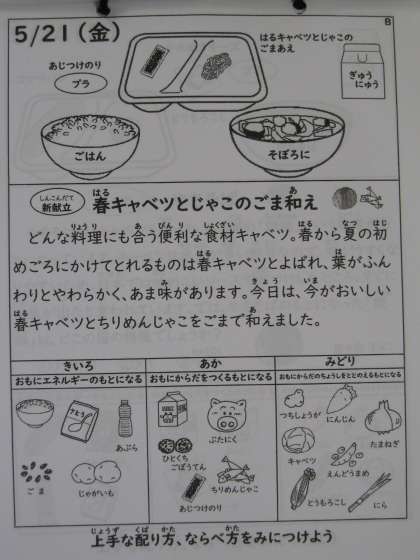 5/21(金)
B
はるキャベツとじゃこの
ごまあえ
あじつけのり
プラ
ぎゅう
にゅう
ごはん
そぼろに
しんこんだて
新献立
はる
あ
春キャベツとじゃこのごま和え
りょうり
あ
べんり
しょくざい
はる
なつ
はじ
どんな料理にも合う便利な食材キャベツ。春から夏の初
はる
は
めごろにかけてとれるものは春キャベツとよばれ、葉がふん
み
きょう
いま
わりとやわらかく、あま味があります。今日は、今がおいしい
はる
あ
春キャベツとちりめんじゃこをごまで和えました。
きいろ
あか
みどり
おもにエネルギーのもとになる
おもにからだをつくるもとになる
おもにからだのちょうしをととのえるもとになる
さとう
あぶら
ごま
じゃがいも
ぶたにく
ひとくち
ごぼうてん
ちりめんじゃこ
あじつけのり
つちしょうが
にんじん
たまねぎ
キャベツ
えんどうまめ
とうもろこし
にら
じょうず
くば
かた
かた
上手な配り方、ならべ方をみにつけよう